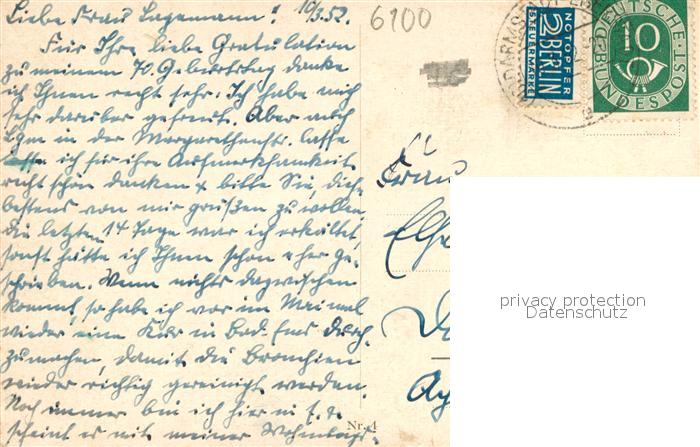 Liebe Frau Lagemann! 10/3.52.
6100
Für Ihre liebe Gratulation
zu meinem 70. Geburtstag danke
ich Ihnen recht sehr. Ich habe mich
sehr darüber gefreut. Aber auch
in der Margarethenstr. lasse
ich für ihre Aufmerksamkeit
recht schön danken & bitte Sie, die
bestens von mir grüßen zu wollen.
die letzten 14 Tage war ich erkältet,
sonst hätte ich Ihnen schon eher ge-
schrieben. Wenn nichts dazwischen
kommt, so habe ich vor im Mai mal
wieder eine Kur in Bad. Ems durch-
zumachen, damit die Bronchien
wieder richtig gereinigt werden.
Noch immer bin ich hier
scheint es mit meiner
Nr. 4
NOTOPFER
2 BERLIN
STEUERMARKE
DEUTSCHE
10
BUNDESPOST
Frau
privacy protection
Datenschutz